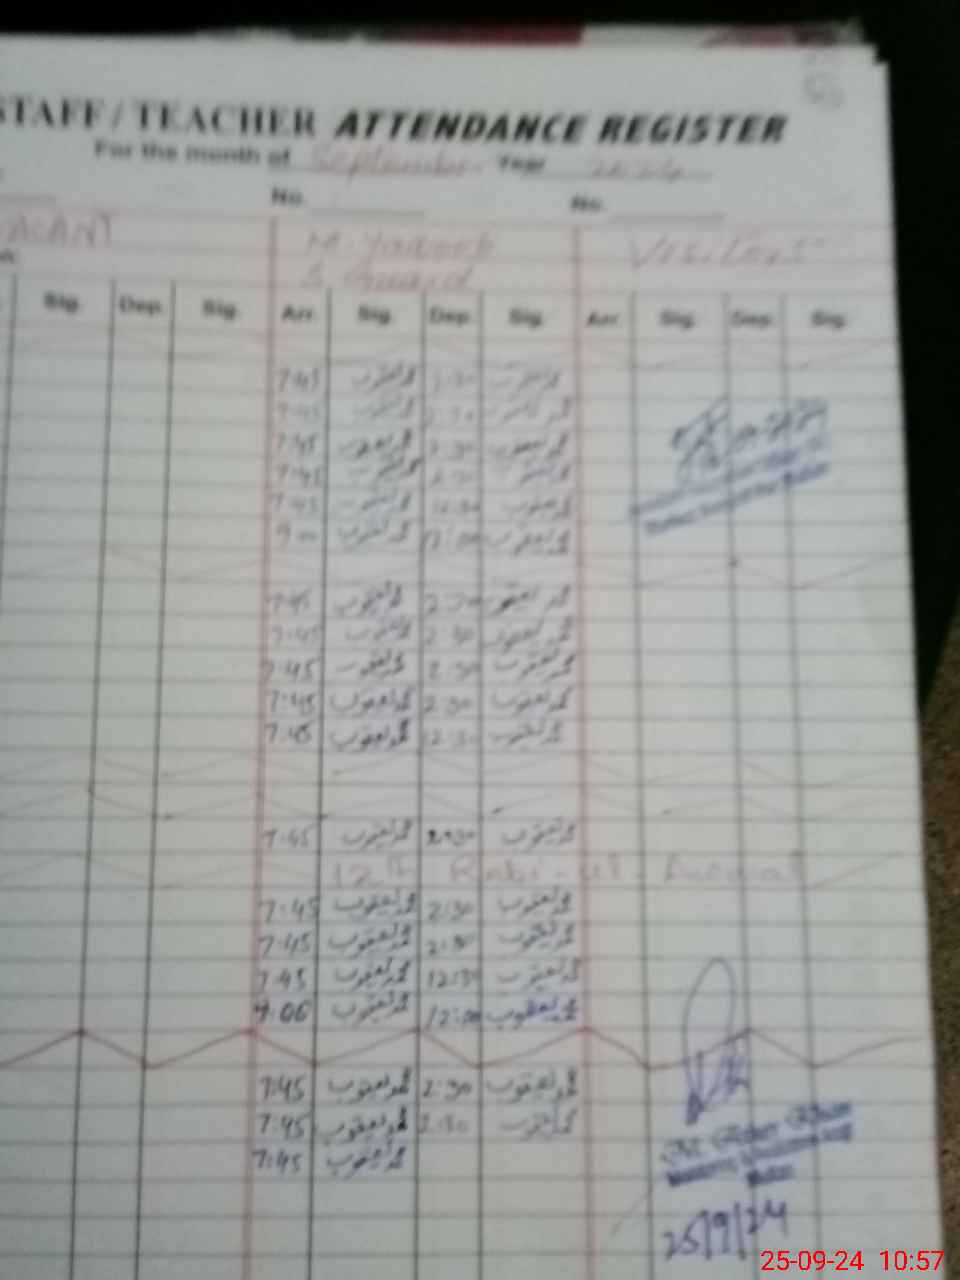 STAFF / TEACHER ATTENDANCE REGISTER
For the month of September Year 2024
No. No.
VACANT M. Yaqoob VISITORS
Sig. Dep. Sig. Arr. Sig. Dep. Sig. Arr. Sig. Dep. Sig.
7:45 محمد یعقوب 2:30 محمد یعقوب
7:45 محمد یعقوب 2:30 محمد یعقوب
7:45 محمد یعقوب 2:30 محمد یعقوب
7:45 محمد یعقوب 2:30 محمد یعقوب
7:45 محمد یعقوب 12:30 محمد یعقوب
9:00 محمد یعقوب 12:00 محمد یعقوب
7:45 محمد یعقوب 2:30 محمد یعقوب
7:45 محمد یعقوب 2:30 محمد یعقوب
7:45 محمد یعقوب 2:30 محمد یعقوب
7:45 محمد یعقوب 2:30 محمد یعقوب
7:45 محمد یعقوب 12:30 محمد یعقوب
7:45 محمد یعقوب 2:30 محمد یعقوب
12th Rabi-ul-Awwal
7:45 محمد یعقوب 2:30 محمد یعقوب
7:45 محمد یعقوب 2:30 محمد یعقوب
7:45 محمد یعقوب 12:30 محمد یعقوب
9:00 محمد یعقوب 12:00 محمد یعقوب
7:45 محمد یعقوب 2:30 محمد یعقوب
7:45 محمد یعقوب 2:30 محمد یعقوب
7:45 محمد یعقوب
25/9/24
25-09-24 10:57